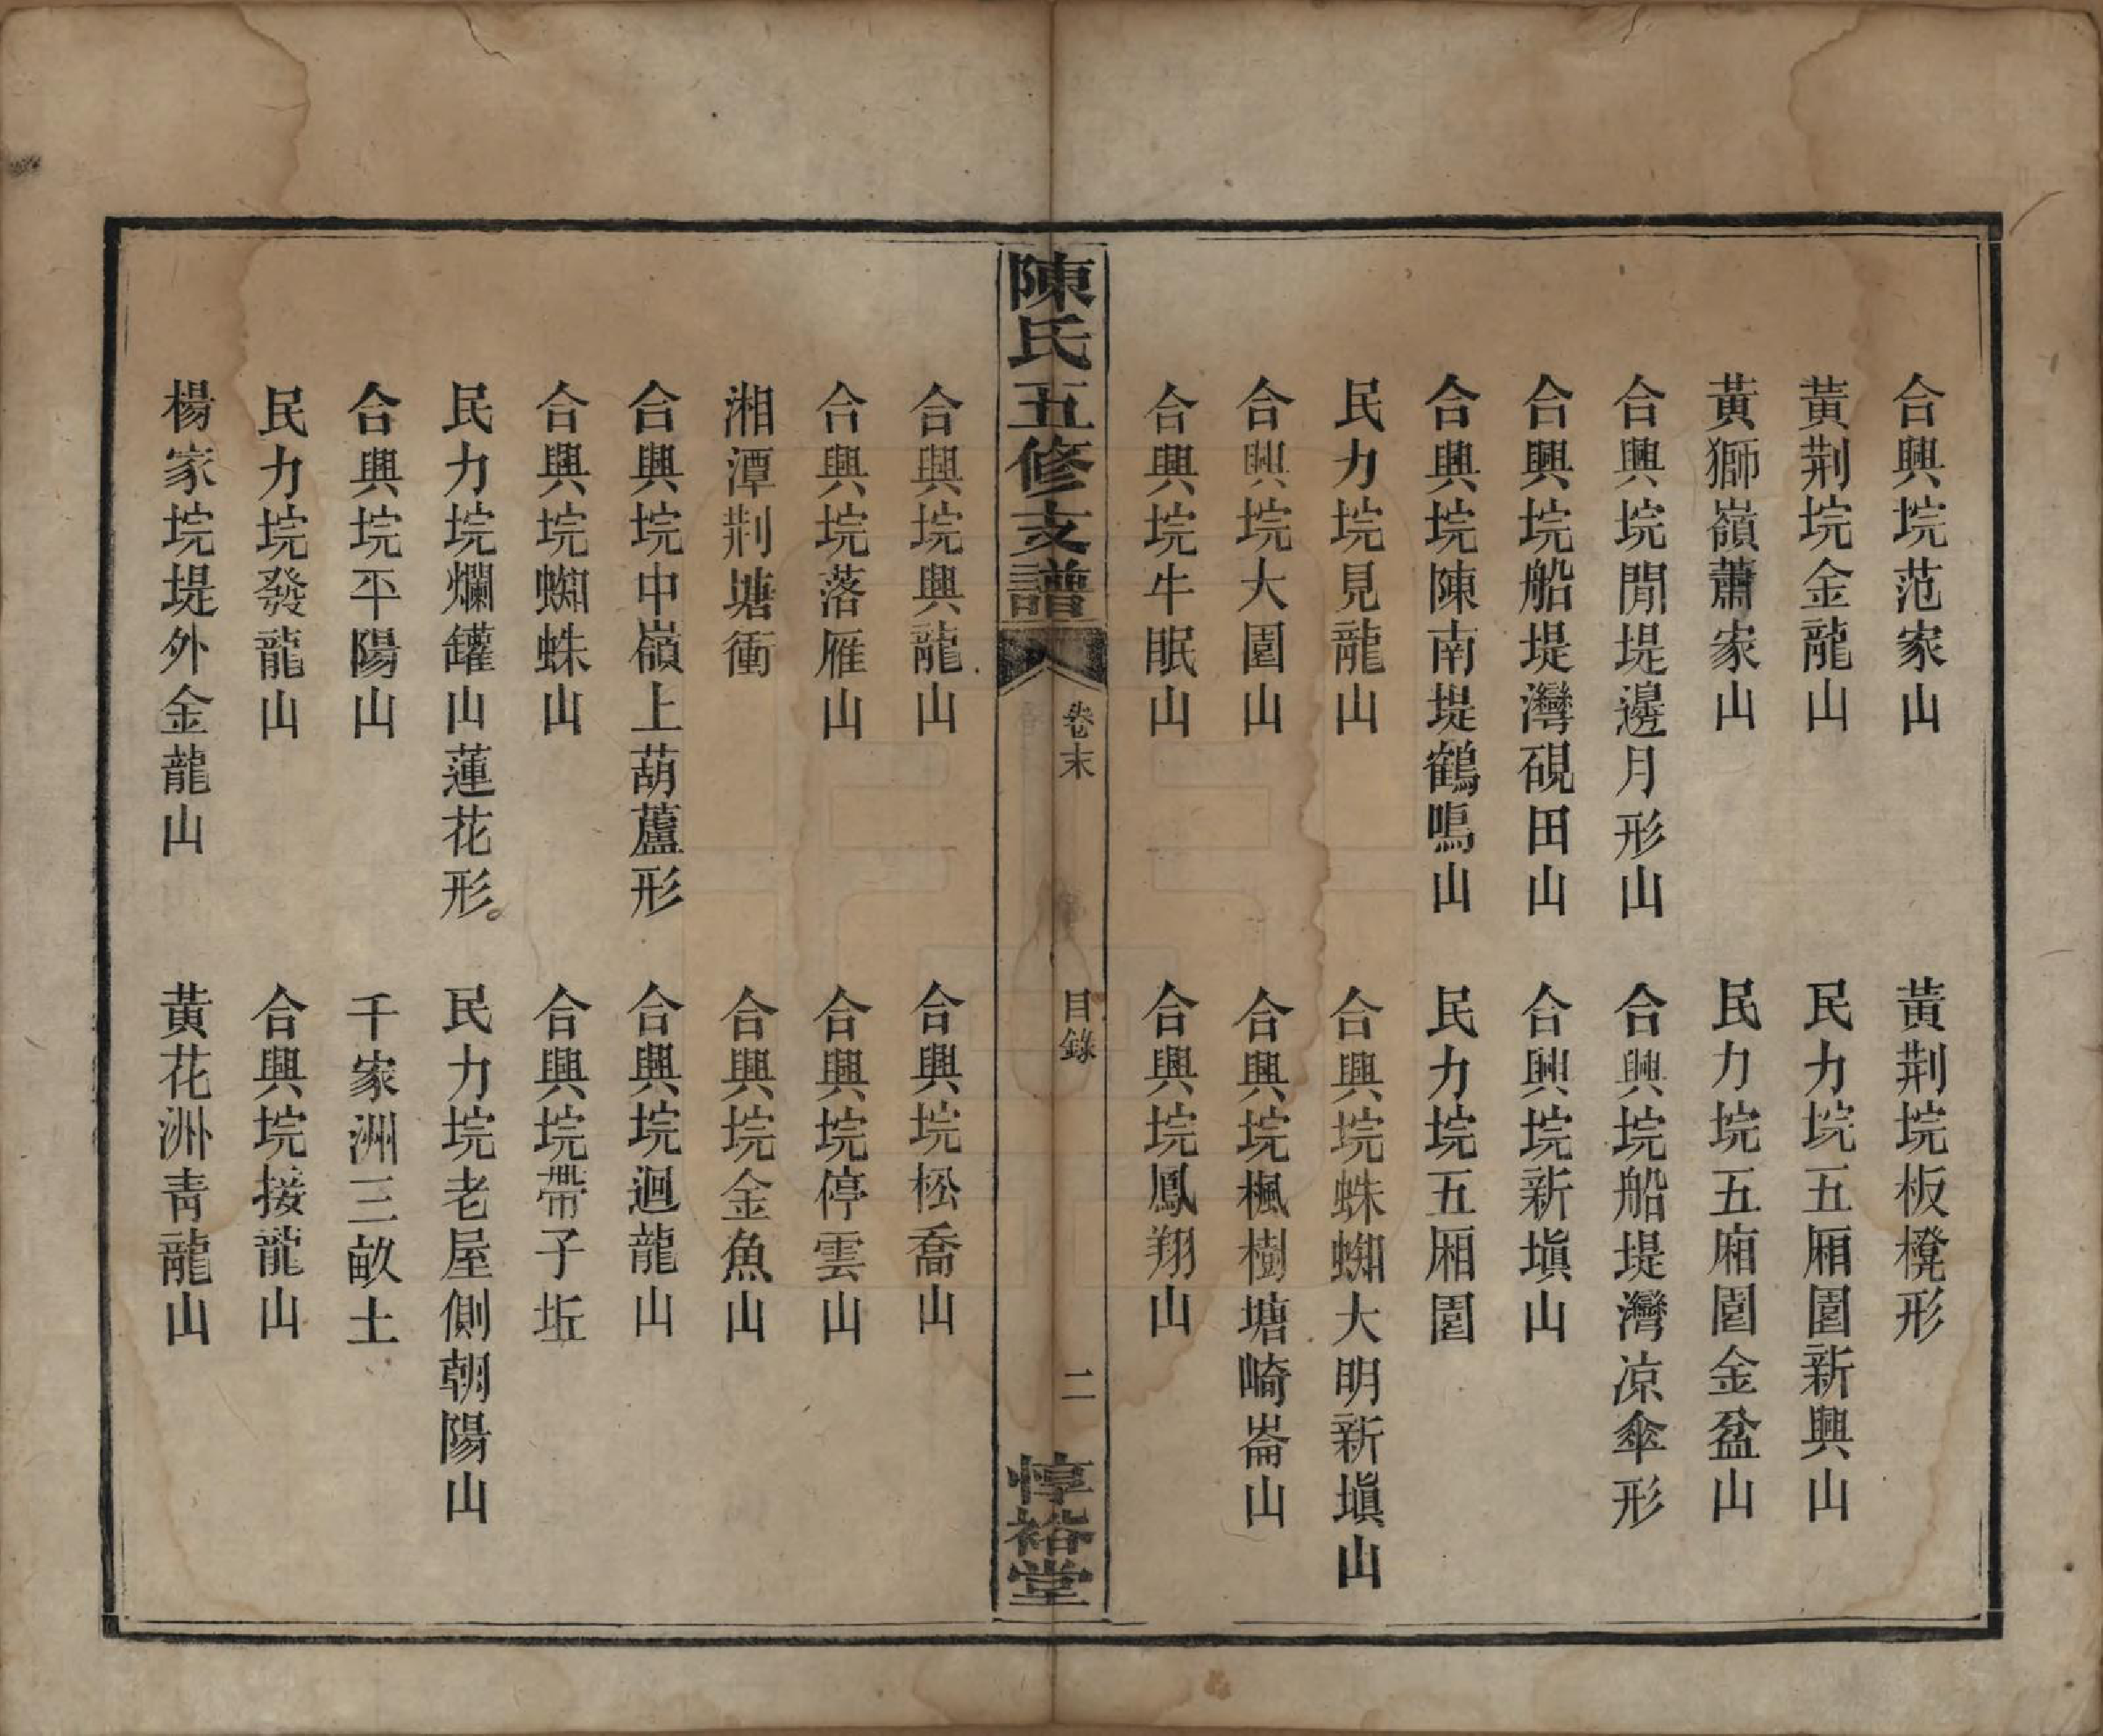 合興垸范家山　黃荆垸板櫈形
黃荆垸金龍山　民力垸五厢園新興山
黃獅嶺蕭家山　民力垸五廂園金盆山
合興垸閒堤邊月形山　合興垸船堤灣凉傘形
合興垸船堤灣硯田山　合興垸新塡山
合興垸陳南堤鶴鳴山　民力垸五厢園
民力垸見龍山　合興垸蛛蜘大明新塡山
合興垸大園山　合興垸楓樹塘崎崙山
合興垸牛眠山　合興垸鳳翔山
陳氏五修支譜　卷末　目錄　二　惇裕堂
合興垸興龍山　合興垸松喬山
合興垸落雁山　合興垸停雲山
湘潭荆塘衝　合興垸金魚山
合興垸中嶺上葫蘆形　合興垸迴龍山
合興垸蜘蛛山　合興垸帶子坵
民力垸爛罐山蓮花形　民力垸老屋側朝陽山
合興垸平陽山　千家洲三畝土
民力垸發龍山　合興垸接龍山
楊家垸堤外金龍山　黃花洲靑龍山